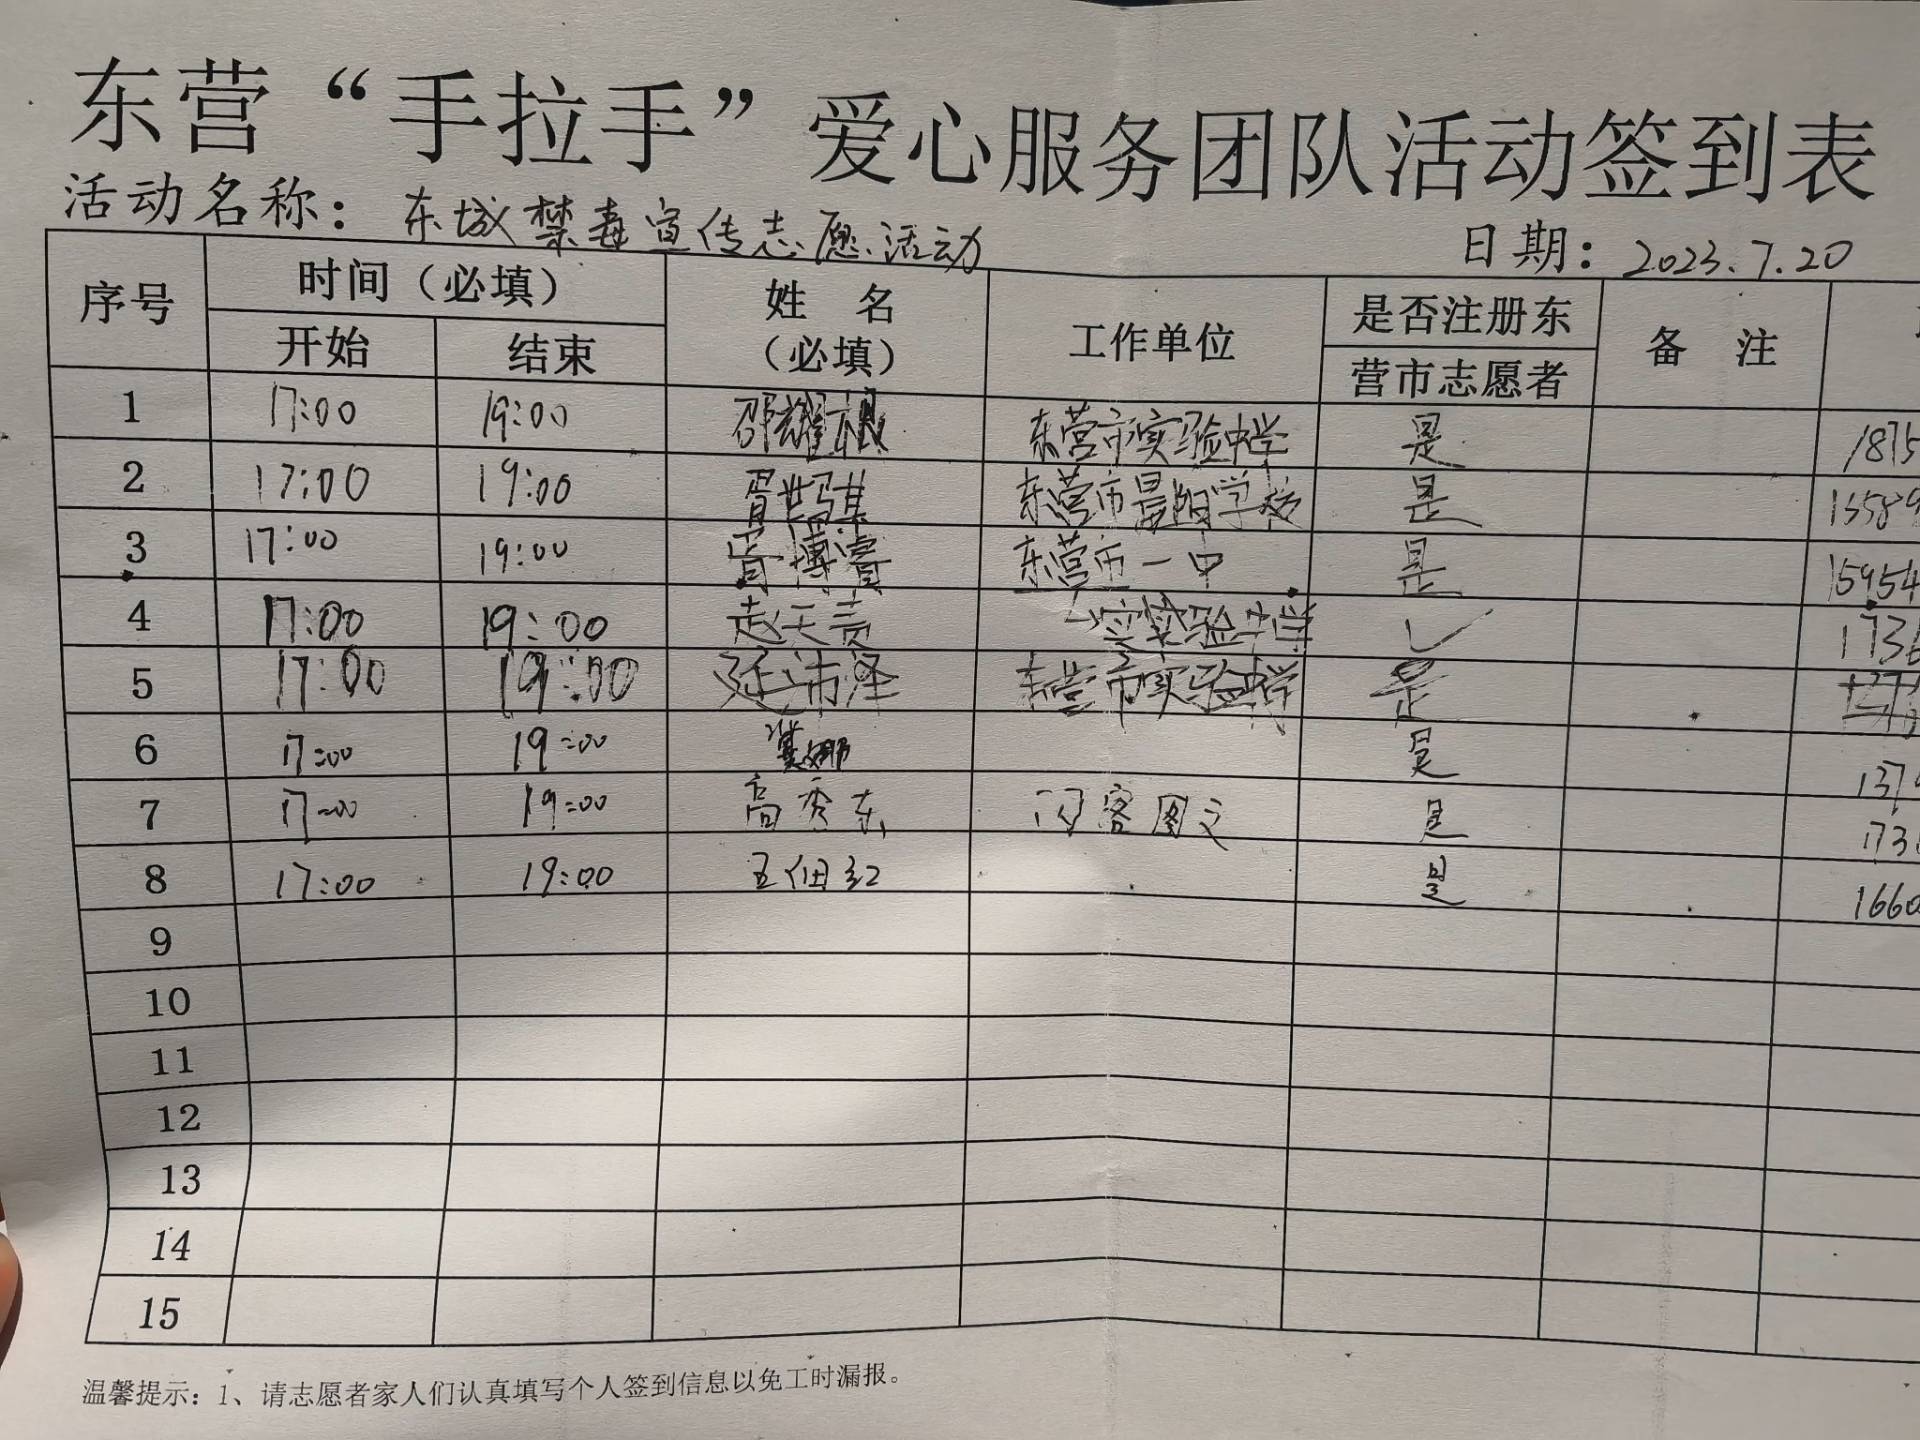 东营“手拉手”爱心服务团队活动签到表
活动名称：东城禁毒宣传志愿活动 日期：2023.7.20
序号 时间（必填） 姓 名（必填） 工作单位 是否注册东营市志愿者 备 注
开始 结束
1 17:00 19:00 邵耀 东营市实验中学 是 1875
2 17:00 19:00 胥 东营市晨阳学校 是 15589
3 17:00 19:00 胥博睿 东营市一中 是 15954
4 17:00 19:00 赵天 实验中学 ✓ 1736
5 17:00 19:00 延沛泽 东营市实验中学 是
6 17:00 19:00 是 1379
7 17:00 19:00 高秀东 闪客图文 是 173
8 17:00 19:00 五佃红 是 1660
9
10
11
12
13
14
15
温馨提示：1、请志愿者家人们认真填写个人签到信息以免工时漏报。